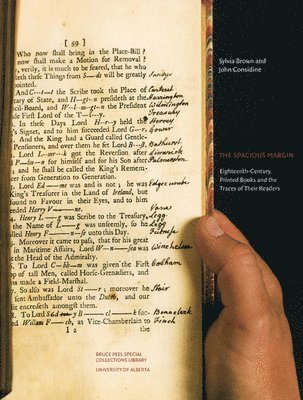 [59]
Who now shall bring in the Place-Bill?
now shall make a Motion for Removal?
verily, it is much to be feared, that he who
leth these Things from S—ds will be greatly Sandys
pointed.
And C—t the Scribe took the Place of Carteret
tary of State, and H—gt—n presideth at the Harrington
cil-Board, and W—lm—gt—n the President
the First Lord of the T—y. Treasury
In these Days Lord H—r—y held the Hervey
's Signet, and to him succeeded Lord G—r. Gower
And the King had a Guard called Gentle-
Pensioners, and over them he set Lord B—st. Bathurst.
Lord L—m—k got the Reversion after Limerick
P—la—n for himself and for his Son after
and he shall be called the King's Remem-
cer from Generation to Generation.
Lord Ed—me was and is not; he was Edgecombe
King's Treasurer in the Land of Ireland, but
found no Favour in their Eyes, and to him
succeeded Harry V—ne. Vane
Henry L—g was Scribe to the Treasury, Legg
the Name of L—g was unseemly, so he was Legg
called Henry F—n—se unto this Day. Furnese
Moreover it came to pass, that for his great
in Maritime Affairs, Lord W—n—sea was Winchelsea
at the Head of the Admiralty.
To Lord C—bh—m was given the First Cobham
op of tall Men, called Horse-Grenadiers, and
was made a Field-Marshal.
So also was Lord St—r; moreover he Stair
sent Ambassador unto the Dutch, and our
it encreaseth amongst them.
To Lord Sydney B—cl—k suc- Beauclerk
ed William F—ch, as Vice-Chamberlain to Finch
I 2 the
Sylvia Brown and
John Considine
THE SPACIOUS MARGIN
Eighteenth-Century
Printed Books and the
Traces of Their Readers
BRUCE PEEL SPECIAL
COLLECTIONS LIBRARY
UNIVERSITY OF ALBERTA